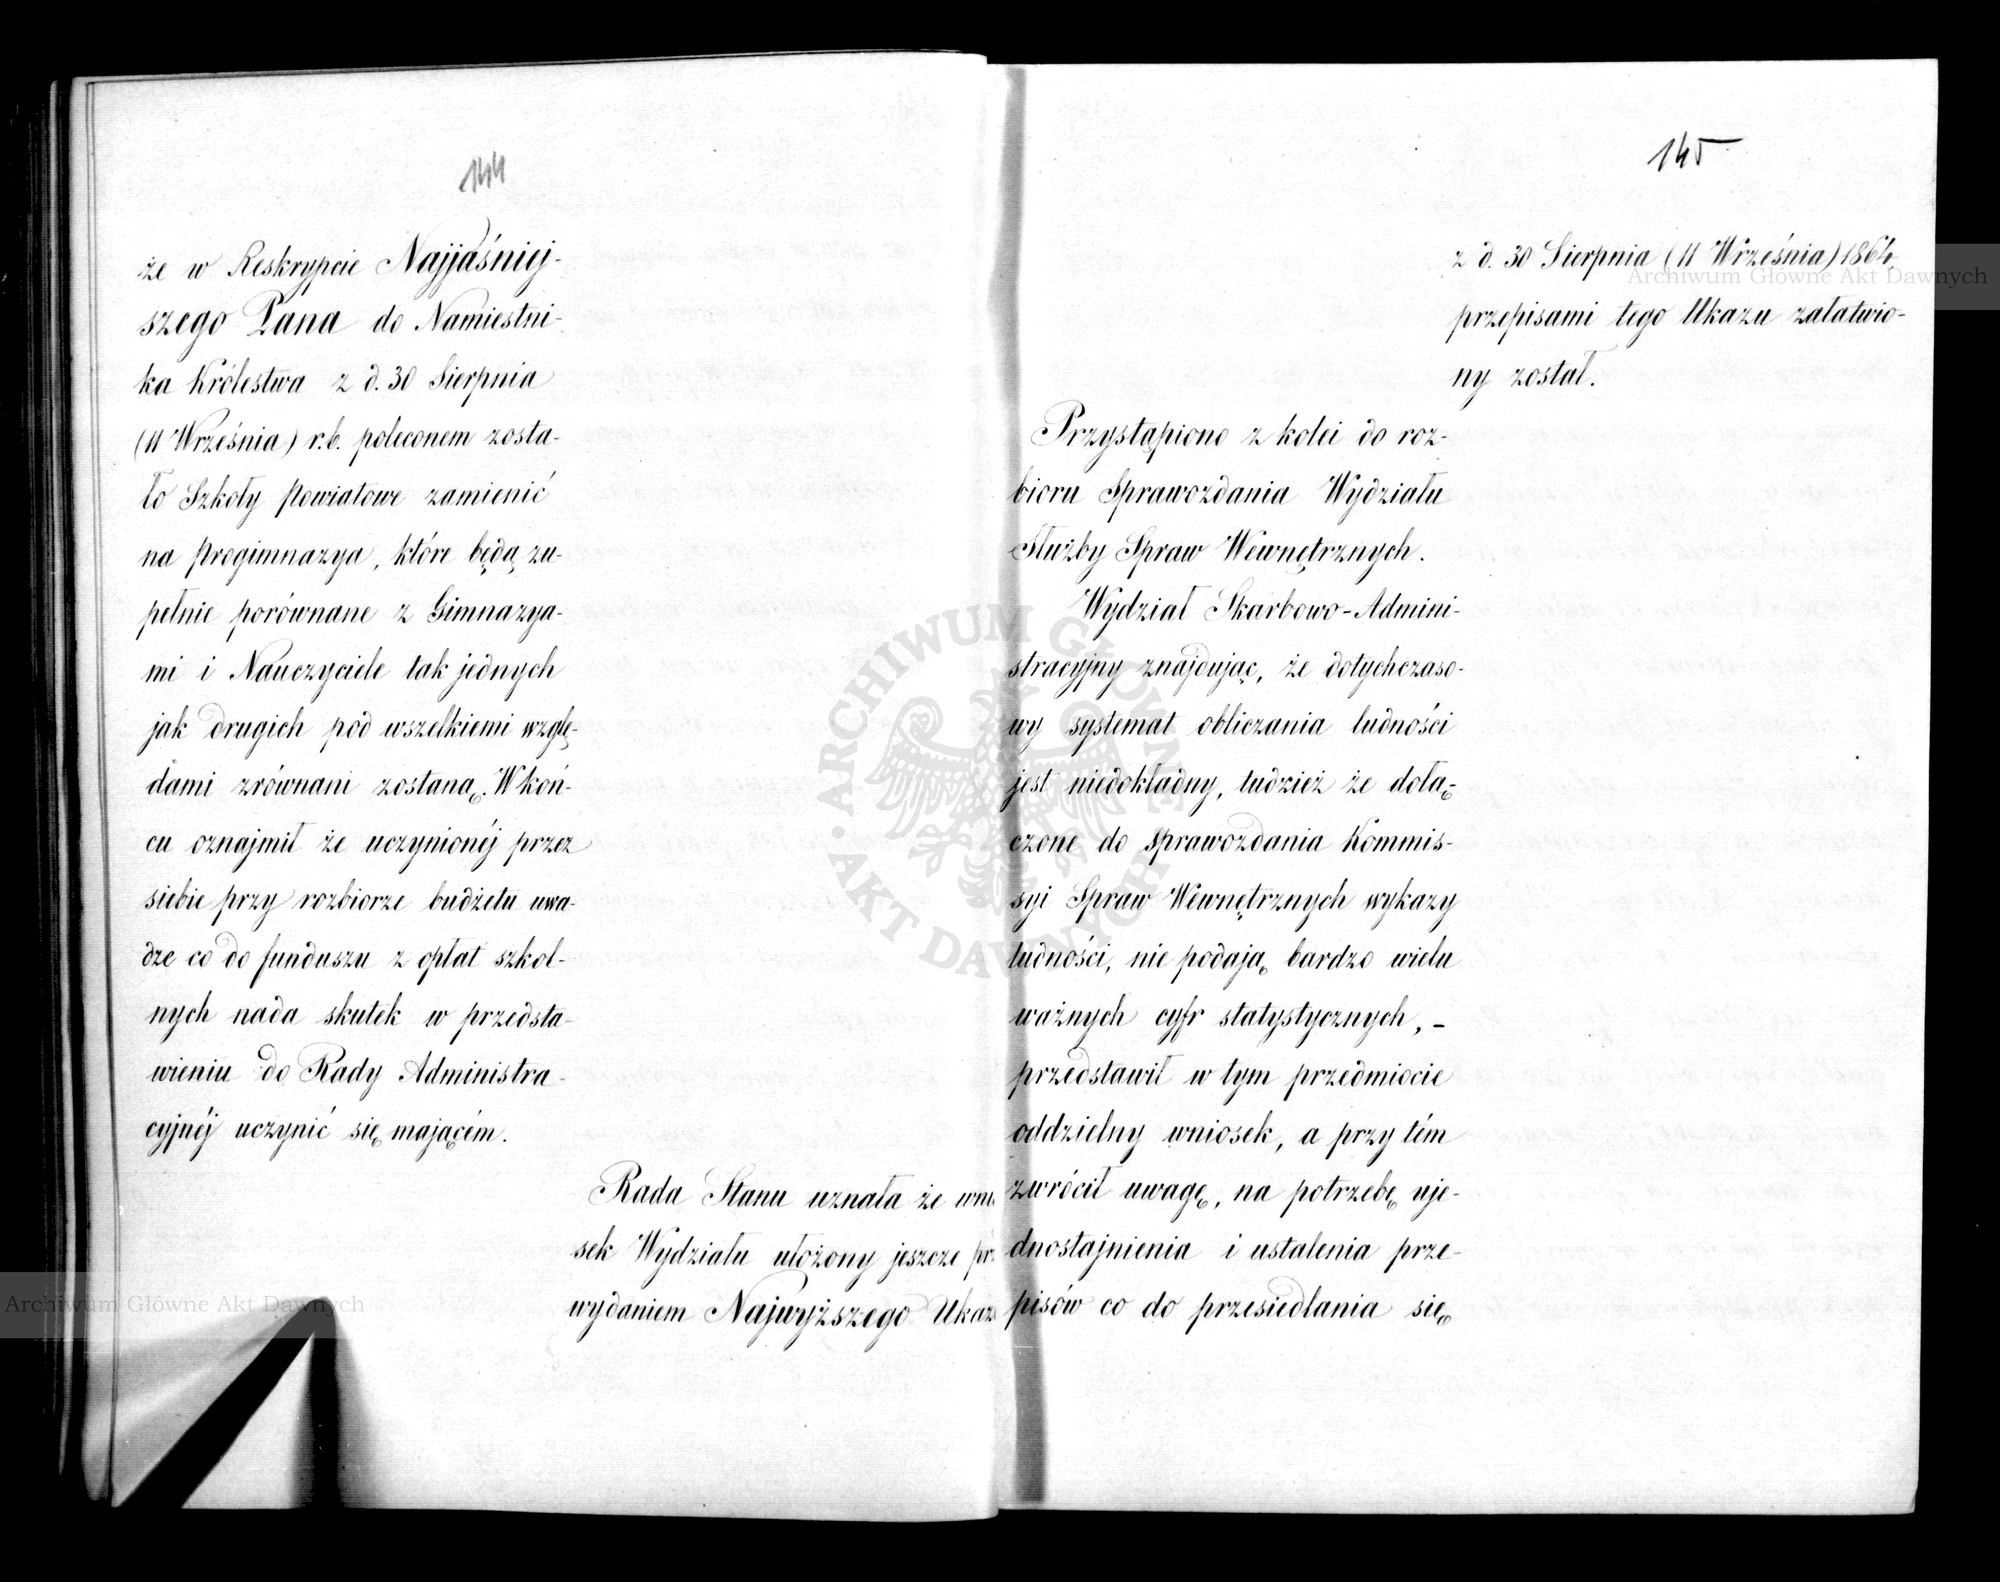 144
że w Reskrypcie Najjaśniej-
szego Pana do Namiestni-
ka Królestwa z d. 30 Sierpnia
(11 Września) r. b. poleconem zosta-
ło Szkoły Powiatowe zamienić
na Progimnazya, które będą zu-
pełnie porównane z Gimnazya-
mi i Nauczyciele tak jednych
jak drugich pod wszelkiemi wzglę-
dami zrównani zostaną. W koń-
cu oznajmił że uczynionéj przez
siebie przy rozbiorze budżetu uwa-
dze co do funduszu z opłat szkol-
nych nada skutek w przedsta-
wieniu do Rady Administra-
cyjnéj uczynić się mającém.
Rada Stanu uznała że wni
sek Wydziału ułożony jeszcze prz
wydaniem Najwyższego Ukaz
145
z d. 30 Sierpnia (11 Września) 1864
przepisami tego Ukazu załatwio-
ny został.
Przystąpiono z kolei do roz-
bioru Sprawozdania Wydziału
Służby Spraw Wewnętrznych.
Wydział Skarbowo-Admini-
stracyjny znajdując, że dotychczaso-
wy systemat obliczania ludności
jest niedokładny, tudzież że dołą-
czone do sprawozdania Kommis-
syi Spraw Wewnętrznych wykazy
ludności, nie podają bardzo wielu
ważnych cyfr statystycznych, -
przedstawił w tym przedmiocie
oddzielny wniosek, a przy tém
zwrócił uwagę, na potrzebę uje-
dnostajnienia i ustalenia prze-
pisów co do przesiedlania się
Archiwum Główne Akt Dawnych
ARCHIWUM GŁÓWNE AKT DAWNYCH
Archiwum Główne Akt Dawnych